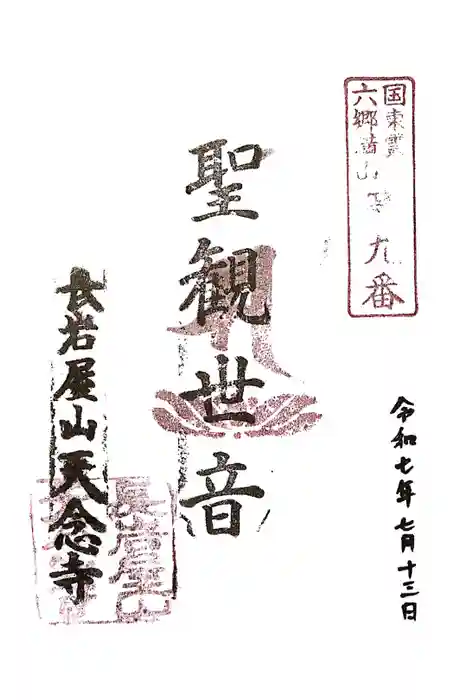 国東
六郷満山
第九番
聖観世音
長岩屋山天念寺
長岩屋山
令和七年七月十三日